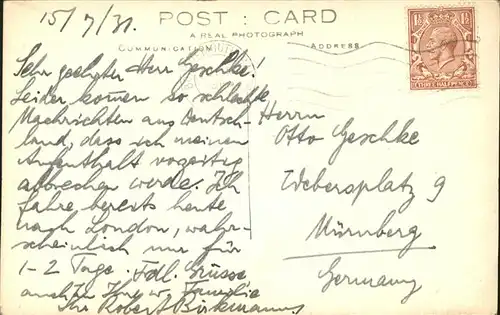 15/7/31.
POST : CARD
A REAL PHOTOGRAPH
COMMUNICATION
ADDRESS
THREE HALF PENCE
Sehr geehrter Herr Geschke!
Leider kommen so schlechte
Nachrichten aus Deutsch-
land, dass ich meinen
Aufenthalt vorzeitig
abbrechen werde. Ich
fahre bereits heute
nach London, wahr-
scheinlich nur für
1-2 Tage. Frdl. Grüsse
auch an Ihre w. Familie
Ihr Robert Birkmann
Herrn
Otto Geschke
Webersplatz 9
Nürnberg
Germany